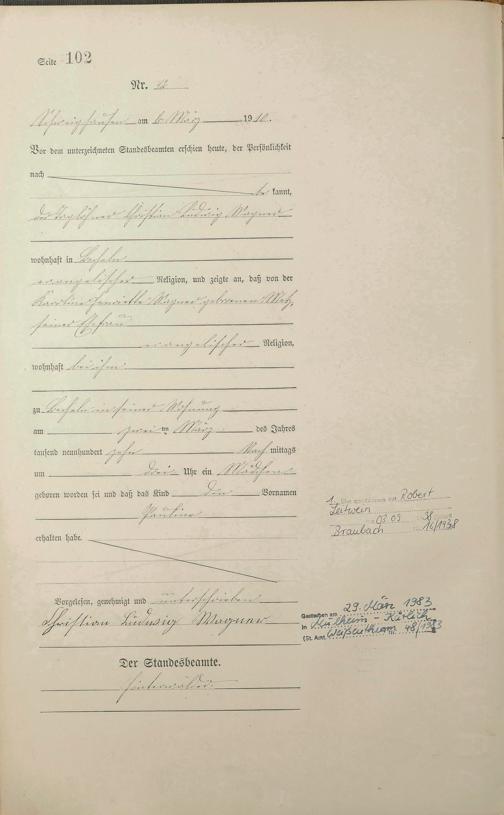 Seite 102
Nr. 12
Schweighausen am 6. März 1910.
Vor dem unterzeichneten Standesbeamten erschien heute, der Persönlichkeit
nach
be kannt,
der Taglöhner Christian Ludwig Wagner
wohnhaft in Becheln
evangelischer Religion, und zeigte an, daß von der
Karoline Henriette Wagner geborenen Metz,
seiner Ehefrau
evangelischer Religion,
wohnhaft bei ihm
zu Becheln in seiner Wohnung
am zwei ten März des Jahres
tausend neunhundert zehn Nach mittags
um drei Uhr ein Mädchen
geboren worden sei und daß das Kind den Vornamen
Pauline
erhalten habe.
Vorgelesen, genehmigt und unterschrieben
Christian Ludwig Wagner
Der Standesbeamte.
Hinterwälder
1. Robert
Leitwein
Braubach 16/1938
Gestorben am 29. März 1983
in Mülheim-Kärlich
(St. Amt Weißenthurm Nr. 48/1983